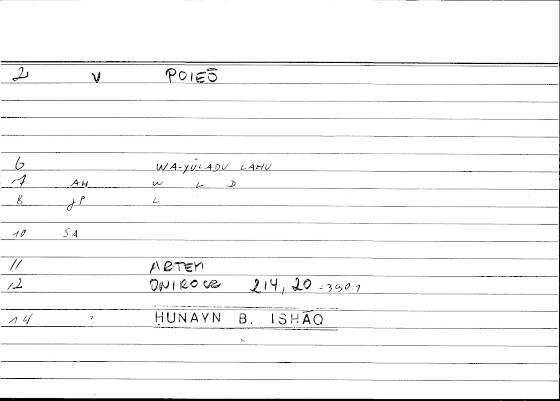 2 V POIEŌ
6 WA-YŪLADU LAHU
7 AH W L D
8 JP L
10 SA
11 ARTEM
12 ONIROCR 214, 20 = 390.7
14 ḤUNAYN B. ISḤĀQ